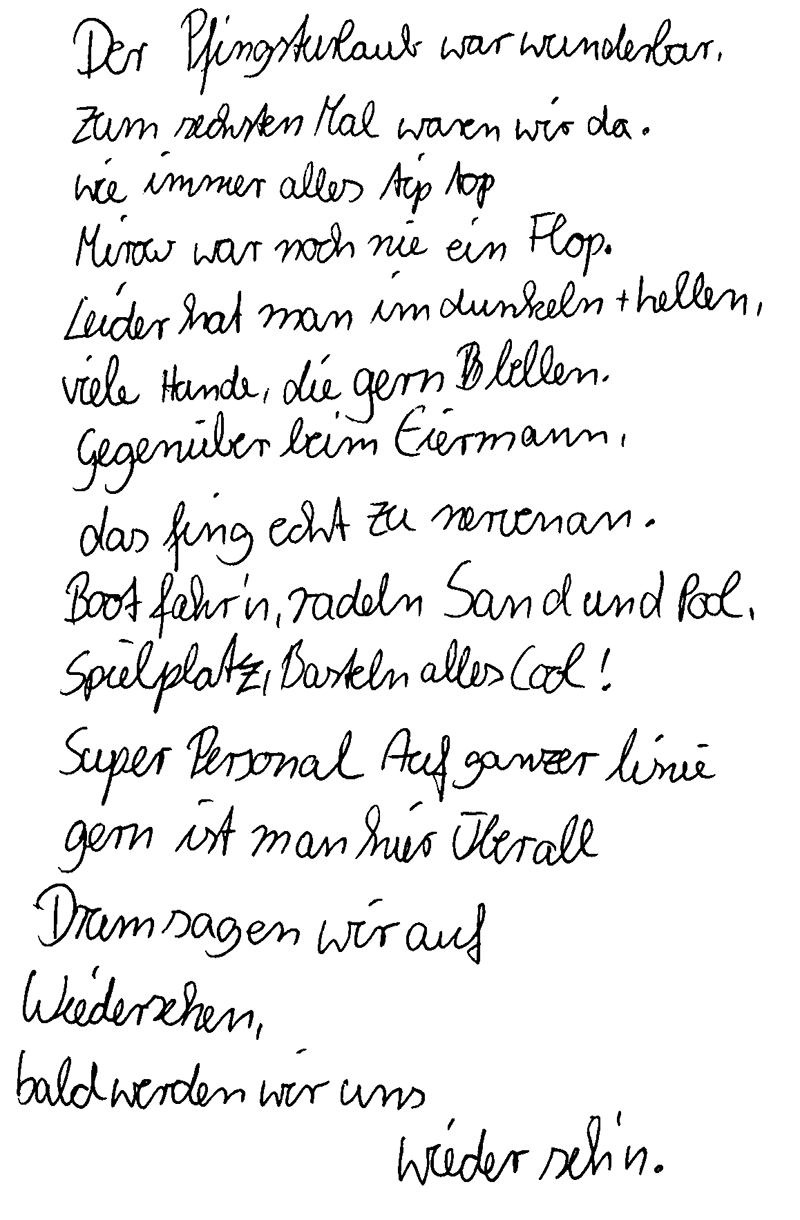 Der Pfingsturlaub war wunderbar,
Zum sechsten Mal waren wir da.
wie immer alles tip top
Mirow war noch nie ein Flop.
Leider hat man im dunkeln + hellen,
viele Hunde, die gern Blellen.
Gegenüber beim Eiermann,
das fing echt zu nerven an.
Boot fahr'n, radeln Sand und Pool,
Spielplatz, Basteln alles Cool!
Super Personal Auf ganzer linie
gern ist man hier Überall
Drum sagen wir auf
Wiedersehen,
bald werden wir uns
wieder seh'n.